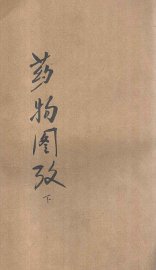 药物图考
下